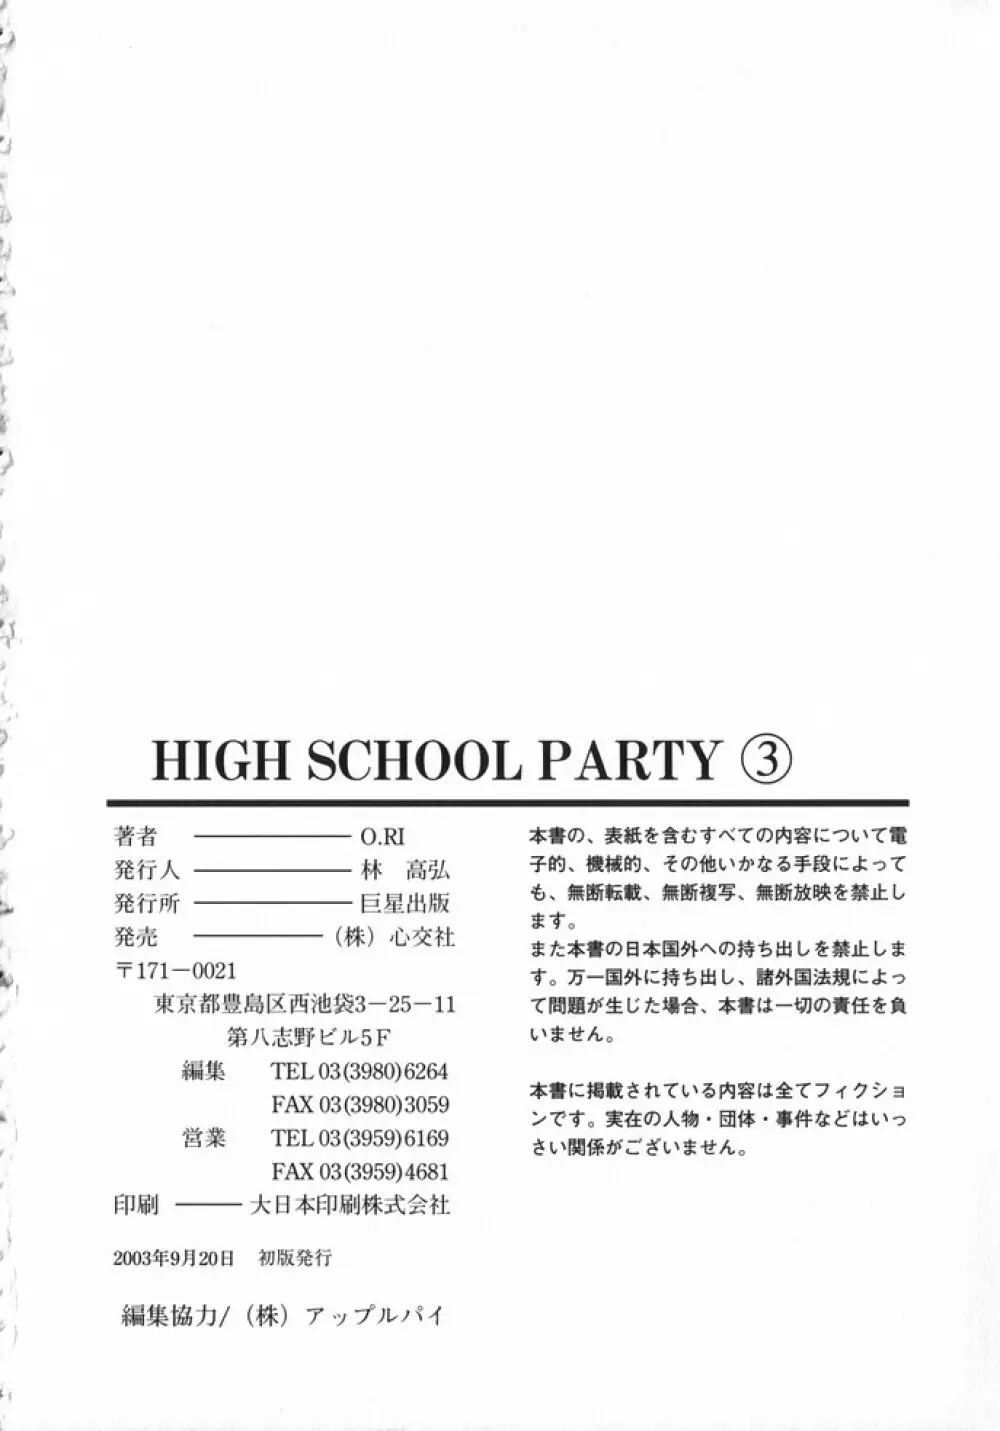 HIGH SCHOOL PARTY ③
著者 ――――――― O.RI
発行人 ――――――― 林　高弘
発行所 ――――――― 巨星出版
発売 ―――――― （株）心交社
〒171－0021
東京都豊島区西池袋3－25－11
第八志野ビル5F
編集　TEL 03(3980)6264
FAX 03(3980)3059
営業　TEL 03(3959)6169
FAX 03(3959)4681
印刷 ――― 大日本印刷株式会社
2003年9月20日　初版発行
編集協力/（株）アップルパイ
本書の、表紙を含むすべての内容について電
子的、機械的、その他いかなる手段によって
も、無断転載、無断複写、無断放映を禁止し
ます。
また本書の日本国外への持ち出しを禁止しま
す。万一国外に持ち出し、諸外国法規によっ
て問題が生じた場合、本書は一切の責任を負
いません。
本書に掲載されている内容は全てフィクショ
ンです。実在の人物・団体・事件などはいっ
さい関係がございません。